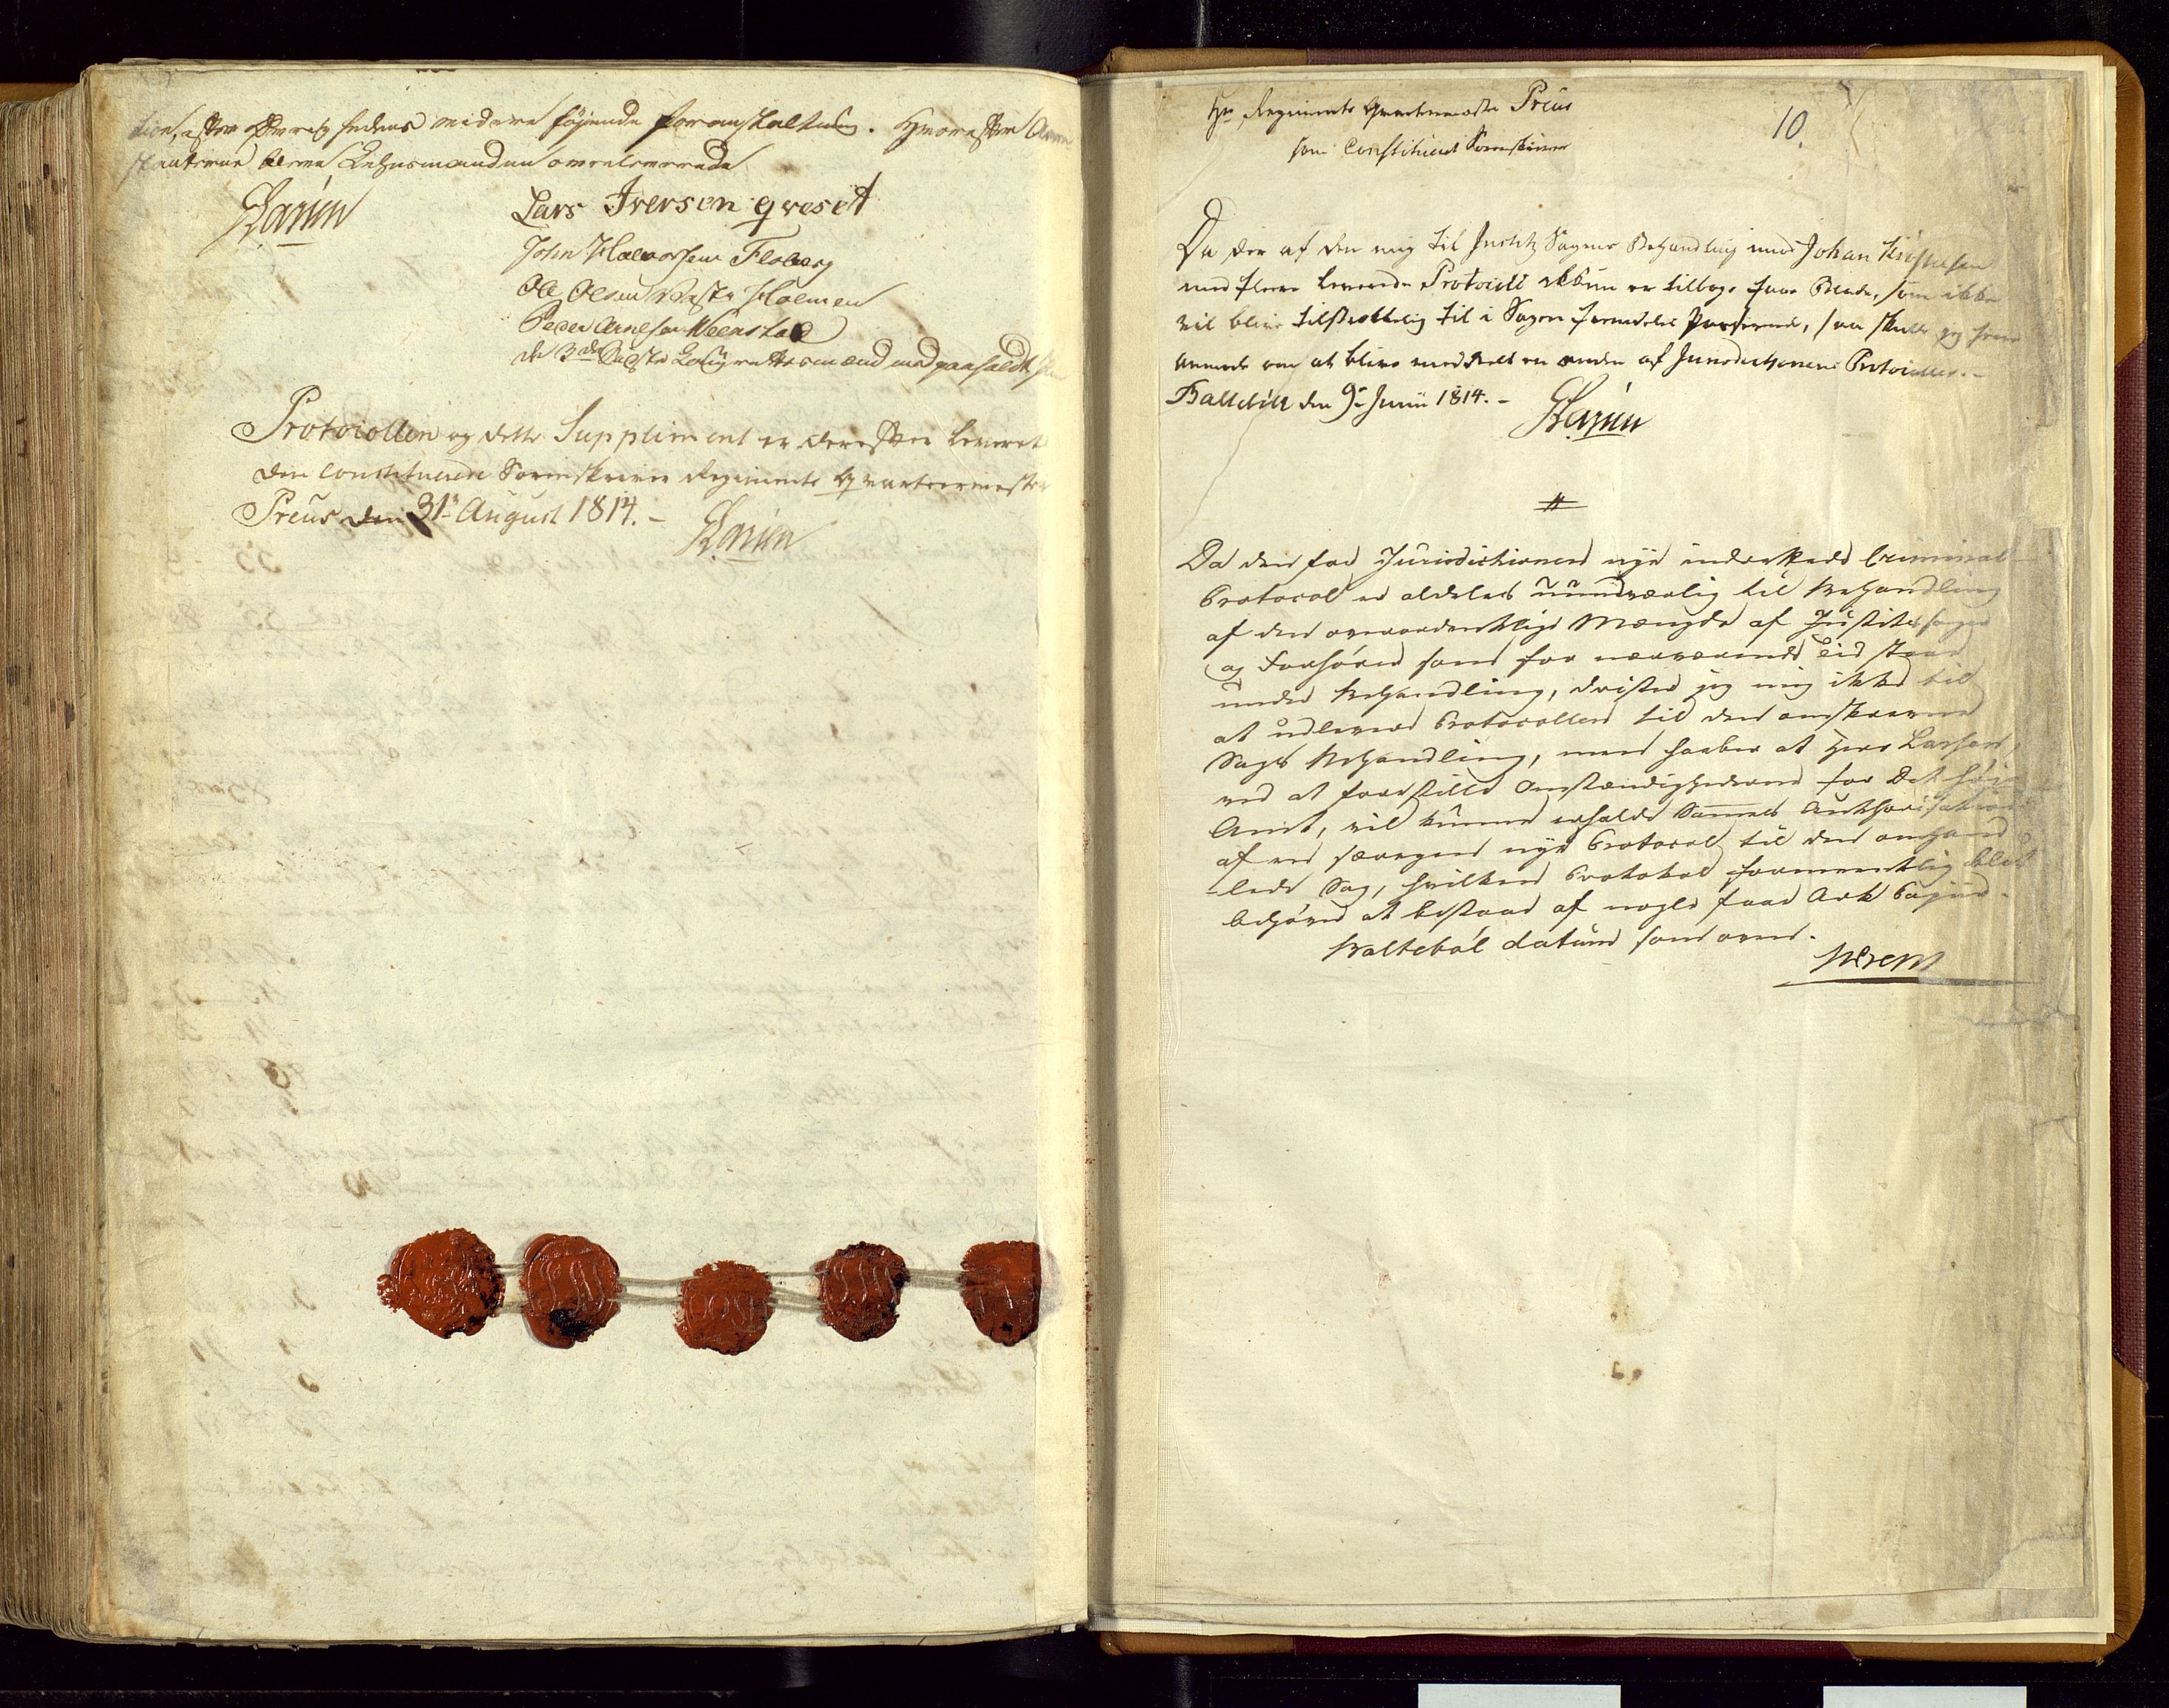 tion, efter Øvrighedens videre føjende Foranstaltning. Hvorefter
Lehnsmanden overleverede
Lars Iversen qveset
John Halvorsen Floberg
Ole Olsen Holmen
Peder Arnesen Weenstad
de 3de Laugrettesmænd med paaholdt
Protocollen og dette Suppliment er derefter leveret
den Constituerede Sorenskriver Regiments Qvarteermester
Preus den 31te August 1814.-
Hr Regiments Qvarteermester Preus
som Constitueret Sorenskriver
10.
Da der af den mig til Justitz Sagens Behandling mod Johan
med flere leverede Protocoll ikkun er tilbage faae Blade, som ikke
vil blive tilstrækkelig til i Sagen fremdeles Passerende, saa skulle jeg herved
anmode om at blive meddeelt en anden af Jurisdictionens Protocoller.-
Baltebøll den 9de Junii 1814.-
Da den for Jurisdictionen nye indrettede Criminal
Protocol er aldeles uundværlig til Behandling
af den overordentlige Mængde af Justitssager
og Forhører som for nærværende Tid staar
under Behandling, drister jeg mig ikke til
at udlevere Protocollen til den omskrevne
Sags Behandling, men haaber at Herr
ved at forestille Omstændighederne for Det høie
Amt, vil kunne erholde Sammes Authorisation
af en særegen nye Protocol til den omhand
-lede Sag, hvilken Protokol formeentlig blot
behøver at bestaae af nogle faae Ark Papiir.
Baltebøl datum som oven.
Preus